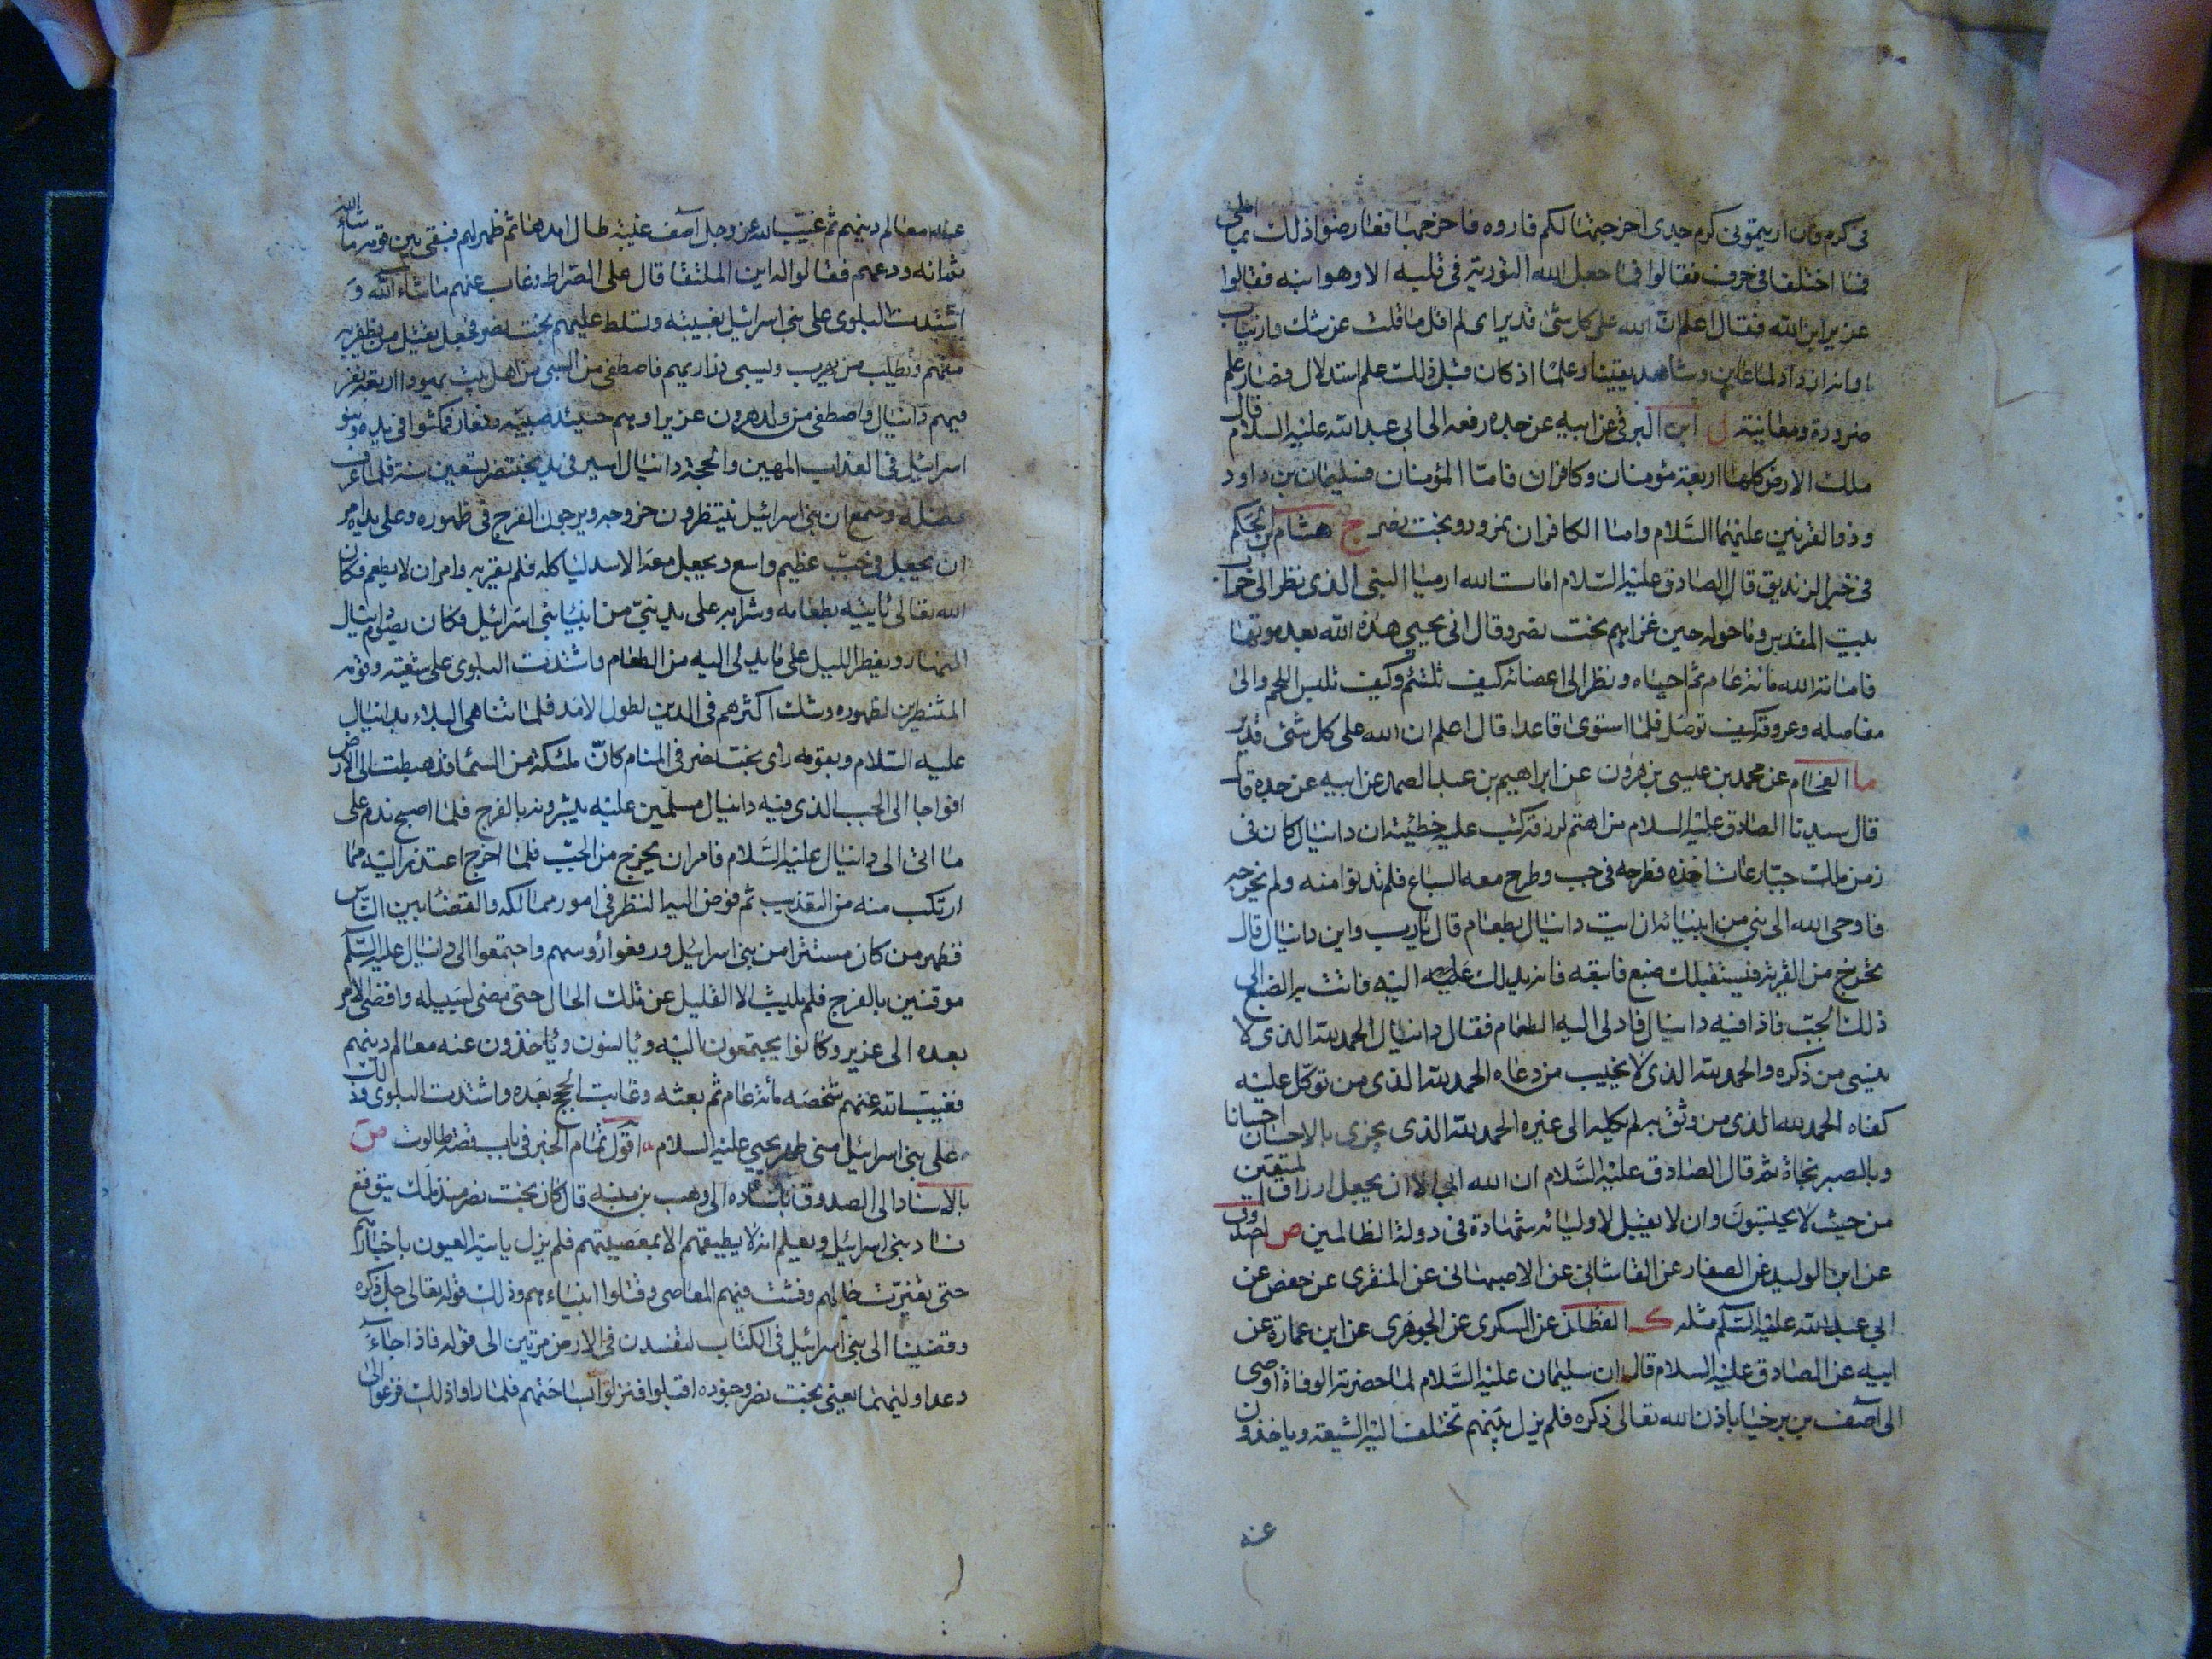 في كرم فان اريتموني كرم جدي اخرجتها لكم فاروه فاخرجها فعارضوا ذلك بما املى
فما اختلفا في حرف فقالوا فما جعل الله التورية في قلبه الا وهو ابنه فقالوا
عزير ابن الله فقال اعلم ان الله على كل شئ قدير اى لم اقل ما قلت عن شك وارتياب
او انه ازداد لما عاين وشاهد يقينا وعلما اذ كان قبل ذلك علم استدلال فصار علم
ضرورة ومعاينة ل ابن البرقي عن ابيه عن جده رفعه الى ابي عبد الله عليه السلام قال
ملك الارض كلها اربعة مؤمنان وكافران فاما المؤمنان فسليمان بن داود
وذو القرنين عليهما السلام واما الكافران نمرود وبخت نصر ج هشام بن الحكم
في خبر الزنديق قال الصادق عليه السلام امات الله ارميا النبي الذي نظر الى خراب
بيت المقدس وما حوله حين غزاهم بخت نصر وقال انى يحيي هذه الله بعد موتها
فاماته الله مائة عام ثم احياه ونظر الى اعضائه كيف تلتئم وكيف تلبس اللحم والى
مفاصله وعروقه كيف توصل فلما استوى قاعدا قال اعلم ان الله على كل شئ قدير
ما الفحام عن محمد بن عيسى بن هرون عن ابراهيم بن عبد الصمد عن ابيه عن جده قال
قال سيدنا الصادق عليه السلام من اهتم لرزقه كتب عليه خطيئة ان دانيال كان في
زمن ملك جبار عات اخذه فطرحه في جب وطرح معه السباع فلم تدنوا منه ولم تخرجه
فاوحى الله الى نبي من انبيائه ان ائت دانيال بطعام قال يا رب واين دانيال قال
تخرج من القرية فيستقبلك ضبع فاتبعه فانه يدلك عليه اليه فاتت به الضبع الى
ذلك الجب فاذا فيه دانيال فادلى اليه الطعام فقال دانيال الحمد لله الذي لا
ينسى من ذكره والحمد لله الذي لا يخيب من دعاه الحمد لله الذي من توكل عليه
كفاه الحمد لله الذي من وثق به لم يكله الى غيره الحمد لله الذي يجزي بالاحسان احسانا
وبالصبر نجاة ثم قال الصادق عليه السلام ان الله ابي الا ان يجعل ارزاق المتقين
من حيث لا يحتسبون وان لا يقبل لاوليائه شهادة في دولة الظالمين ص الصدوق
عن ابن الوليد عن الصفار عن القاشاني عن الاصبهاني عن المنقرى عن حفص عن
ابي عبد الله عليه السلم مثله ك القطان عن السكرى عن الجوهرى عن ابن عمارة عن
ابيه عن الصادق عليه السلام قال ان سليمان عليه السلام لما حضرته الوفاة اوصى
الى آصف بن برخيا باذن الله تعالى ذكره فلم يزل بينهم تختلف اليه الشيعة وياخذون
عنه
عنه معالم دينهم ثم غيب الله عز وجل آصف غيبة طال امدها ثم ظهر لهم فبقي بين قومه ما شاء الله
ثم انه ودعهم فقالوا له اين الملتقا قال على الصراط وغاب عنهم ما شاء الله و
اشتدت البلوى على بني اسرائيل بغيبته وتسلط عليهم بخت نصر فجعل يقتل من يظفر به
منهم ويطلب من يهرب ويسبي ذراريهم فاصطفى من السبي من اهل بيت يهودا اربعة نفر
فيهم دانيال واصطفى من ولد هرون عزيرا وهم حينئذ صبية صغار فمكثوا في يده وبنو
اسرائيل في العذاب المهين والحجة دانيال اسير في يد بختنصر تسعين سنة فلما عرف
فضله وسمع ان بني اسرائيل ينتظرون خروجه ويرجون الفرج في ظهوره وعلى يده امر
ان يجعل في جب عظيم واسع ويجعل معه الاسد لياكله فلم يقربه وامر ان لا يطعم فكان
الله تعالى ياتيه بطعامه وشرابه على يد نبي من انبياء بني اسرائيل وكان يصوم دانيال
النهار ويفطر الليل على ما يدلى اليه من الطعام واشتدت البلوى على شيعته وقومه
المنتظرين لظهوره وشك اكثرهم في الدين لطول الامد فلما تناهى البلاء بدانيال
عليه السلام وبقومه راى بخت نصر في المنام كان ملئكة من السماء قد هبطت الى الارض
افواجا الى الجب الذي فيه دانيال مسلمين عليه يبشرونه بالفرج فلما اصبح ندم على
ما اتى الى دانيال عليه السلام فامر ان يخرج من الجب فلما اخرج اعتذر اليه مما
ارتكب منه من التعذيب ثم فوض اليه النظر في امور ممالكه والقضاء بين الناس
فظهر من كان مستترا من بني اسرائيل ورفعوا رؤسهم واجتمعوا الى دانيال عليه السلم
موقنين بالفرج فلم يلبث الا القليل عن تلك الحال حتى مضى لسبيله وافضى الامر
بعده الى عزير وكانوا يجتمعون اليه ويانسون وياخذون عنه معالم دينهم
فغيب الله عنهم شخصه مائة عام ثم بعثه وغابت الحجج بعده واشتدت البلوى
على بني اسرائيل حتى ظهر يحيي عليه السلام اقول تمام الخبر في باب قصة طالوت ص
بالاسناد الى الصدوق باسناده الى وهب بن منبه قال كان بخت نصر منذ ملك يتوقع
فساد بني اسرائيل ويعلم انه لا يطيقهم الا بمعصيتهم فلم يزل ياتيه العيون باخبارهم
حتى تغيرت حالهم وفشت فيهم المعاصي وقتلوا انبياءهم وذلك قوله تعالى جل ذكره
وقضينا الى بني اسرائيل في الكتاب لتفسدن في الارض مرتين الى قوله فاذا جاء
وعد اوليهما يعني بخت نصر وجنوده اقبلوا فنزلوا بساحتهم فلما راوا ذلك فزعوا الى